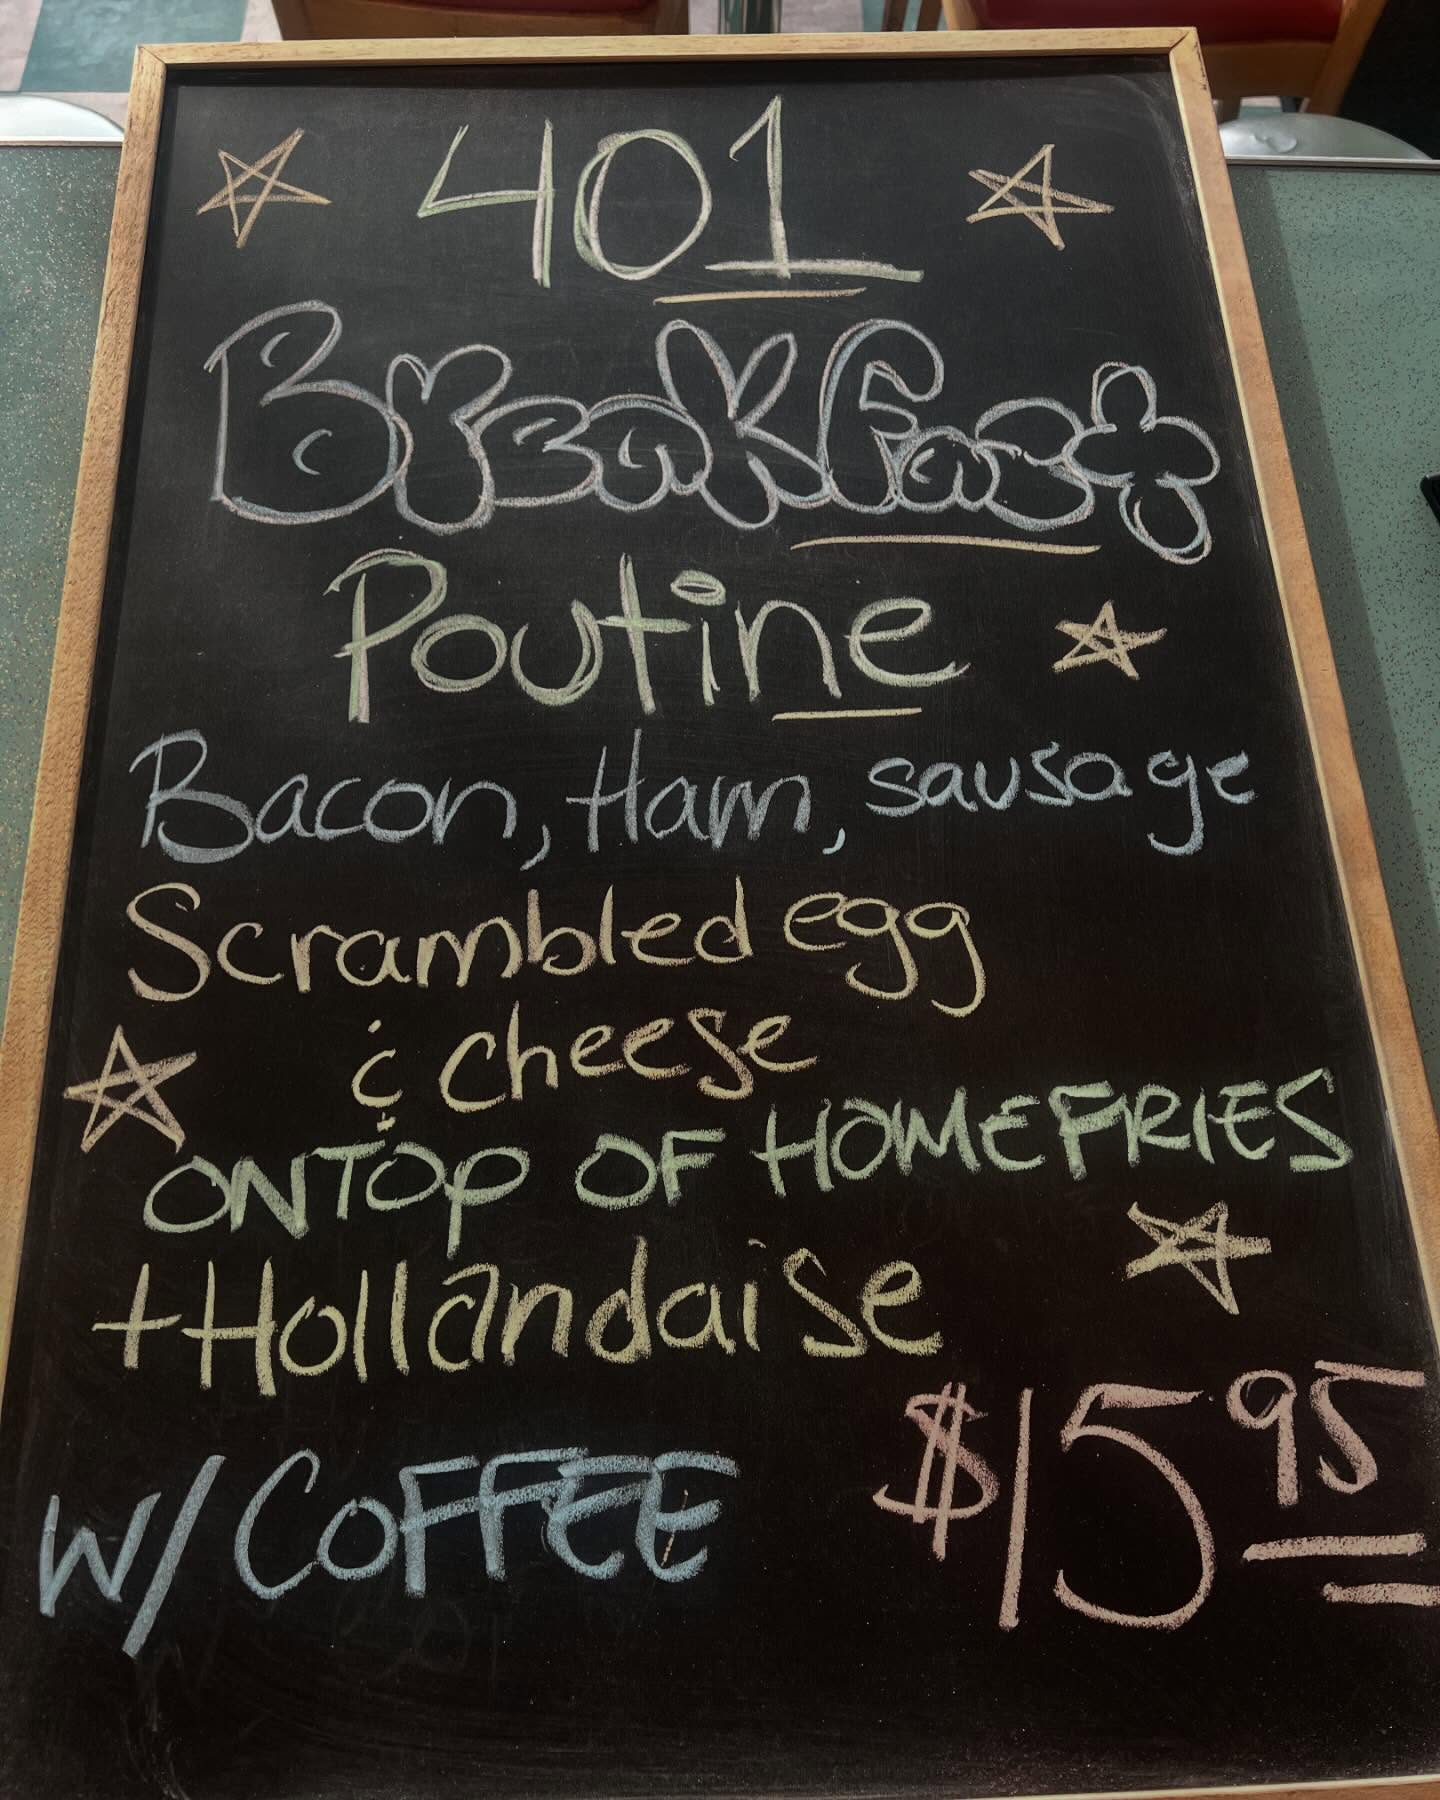 401
Breakfast
Poutine
Bacon, Ham, sausage
Scrambled egg
& cheese
ONTOP OF HOMEFRIES
+Hollandaise
W/ COFFEE $15.95